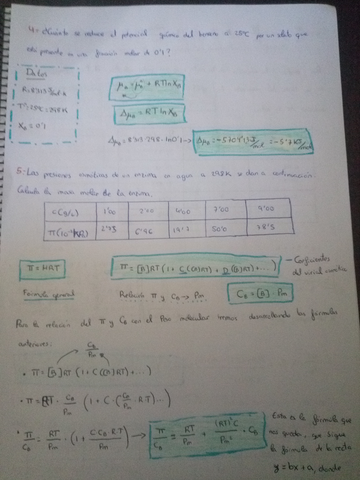 4.- ¿Cuánto se reduce el potencial químico del benceno a 25ºC por un soluto que
está presente en una fracción molar de 0'1?
Datos
R = 8'313 J/mol K
Tª = 25ºC = 298K
XB = 0'1
μA = μA* + RT ln XB
ΔμA = RT ln XB
ΔμA = 8'31·298·ln 0'1 → ΔμA = -5705'13 J/mol = -5'7 KJ/mol
5.- Las presiones osmóticas de una enzima en agua a 298K se dan a continuación.
Calcula la masa molar de la enzima.
C(g/L) 1'00 2'00 4'00 7'00 9'00
2'73 6'96 19'7 50'0 78'5
Π = MRT
Π = [B]RT(1 + C(B)RT) + D(B)RT) + ...) → Coeficientes del virial osmótico
Fórmula general
Relación Π y CB → Pm
CB = [B]·Pm
Para la relación del Π y CB con el Pm molecular iremos desarrollando las fórmulas
anteriores:
CB/Pm
• Π = [B]RT(1 + C([B])RT) + ...)
• Π = RT · CB/Pm (1 + C·(CB/Pm · R·T)...)
• Π/CB = RT/Pm · (1 + C·CB·R·T/Pm) → Π/CB = RT/Pm + (RT)²C/Pm² · CB
Esta es la fórmula que
nos queda, que sigue
la fórmula de la recta
y = bx + a, donde